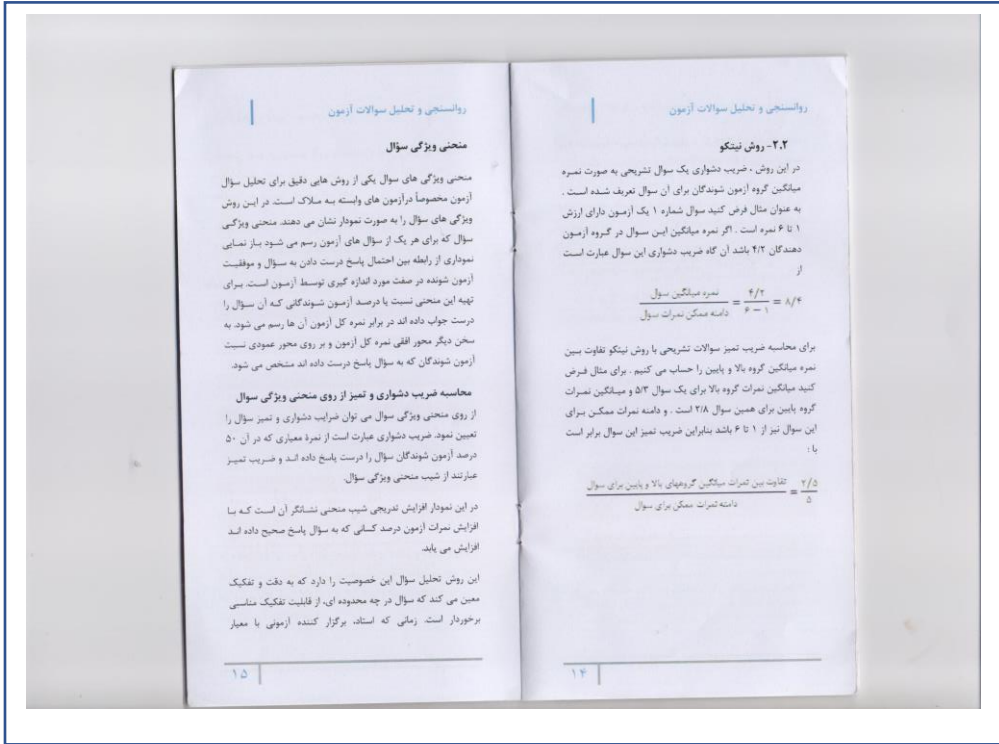 روانسنجی و تحلیل سوالات آزمون
۲.۲- روش نیتکو
در این روش ، ضریب دشواری یک سوال تشریحی به صورت نمره
میانگین گروه آزمون شوندگان برای آن سوال تعریف شده است .
به عنوان مثال فرض کنید سوال شماره ۱ یک آزمون دارای ارزش
۱ تا ۶ نمره است . اگر نمره میانگین این سوال در گروه آزمون
دهندگان ۴/۲ باشد آن گاه ضریب دشواری این سوال عبارت است
از
نمره میانگین سوال / دامنه ممکن نمرات سوال = ۴/۲ / ۶ − ۱ = ۸/۴
برای محاسبه ضریب تمیز سوالات تشریحی با روش نیتکو تفاوت بین
نمره میانگین گروه بالا و پایین را حساب می کنیم . برای مثال فرض
کنید میانگین نمرات گروه بالا برای یک سوال ۵/۳ و میانگین نمرات
گروه پایین برای همین سوال ۲/۸ است . و دامنه نمرات ممکن برای
این سوال نیز از ۱ تا ۶ باشد بنابراین ضریب تمیز این سوال برابر است
با :
تفاوت بین نمرات میانگین گروههای بالا و پایین برای سوال / دامنه نمرات ممکن برای سوال = ۲/۵ / ۵
۱۴
روانسنجی و تحلیل سوالات آزمون
منحنی ویژگی سؤال
منحنی ویژگی های سوال یکی از روش هایی دقیق برای تحلیل سؤال
آزمون مخصوصاً درآزمون های وابسته به ملاک است. در این روش
ویژگی های سؤال را به صورت نمودار نشان می دهند. منحنی ویژگی
سؤال که برای هر یک از سؤال های آزمون رسم می شود باز نمایی
نموداری از رابطه بین احتمال پاسخ درست دادن به سؤال و موفقیت
آزمون شونده در صفت مورد اندازه گیری توسط آزمون است. برای
تهیه این منحنی نسبت یا درصد آزمون شوندگانی که آن سؤال را
درست جواب داده اند در برابر نمره کل آزمون آن ها رسم می شود. به
سخن دیگر محور افقی نمره کل آزمون و بر روی محور عمودی نسبت
آزمون شوندگان که به سؤال پاسخ درست داده اند مشخص می شود.
محاسبه ضریب دشواری و تمیز از روی منحنی ویژگی سوال
از روی منحنی ویژگی سوال می توان ضرایب دشواری و تمیز سؤال را
تعیین نمود. ضریب دشواری عبارت است از نمرهٔ معیاری که در آن ۵۰
درصد آزمون شوندگان سؤال را درست پاسخ داده اند و ضریب تمیز
عبارتند از شیب منحنی ویژگی سؤال.
در این نمودار افزایش تدریجی شیب منحنی نشانگر آن است که با
افزایش نمرات آزمون درصد کسانی که به سؤال پاسخ صحیح داده اند
افزایش می یابد.
این روش تحلیل سؤال این خصوصیت را دارد که به دقت و تفکیک
معین می کند که سؤال در چه محدوده ای، از قابلیت تفکیک مناسبی
برخوردار است. زمانی که استاد، برگزار کننده آزمونی با معیار
۱۵